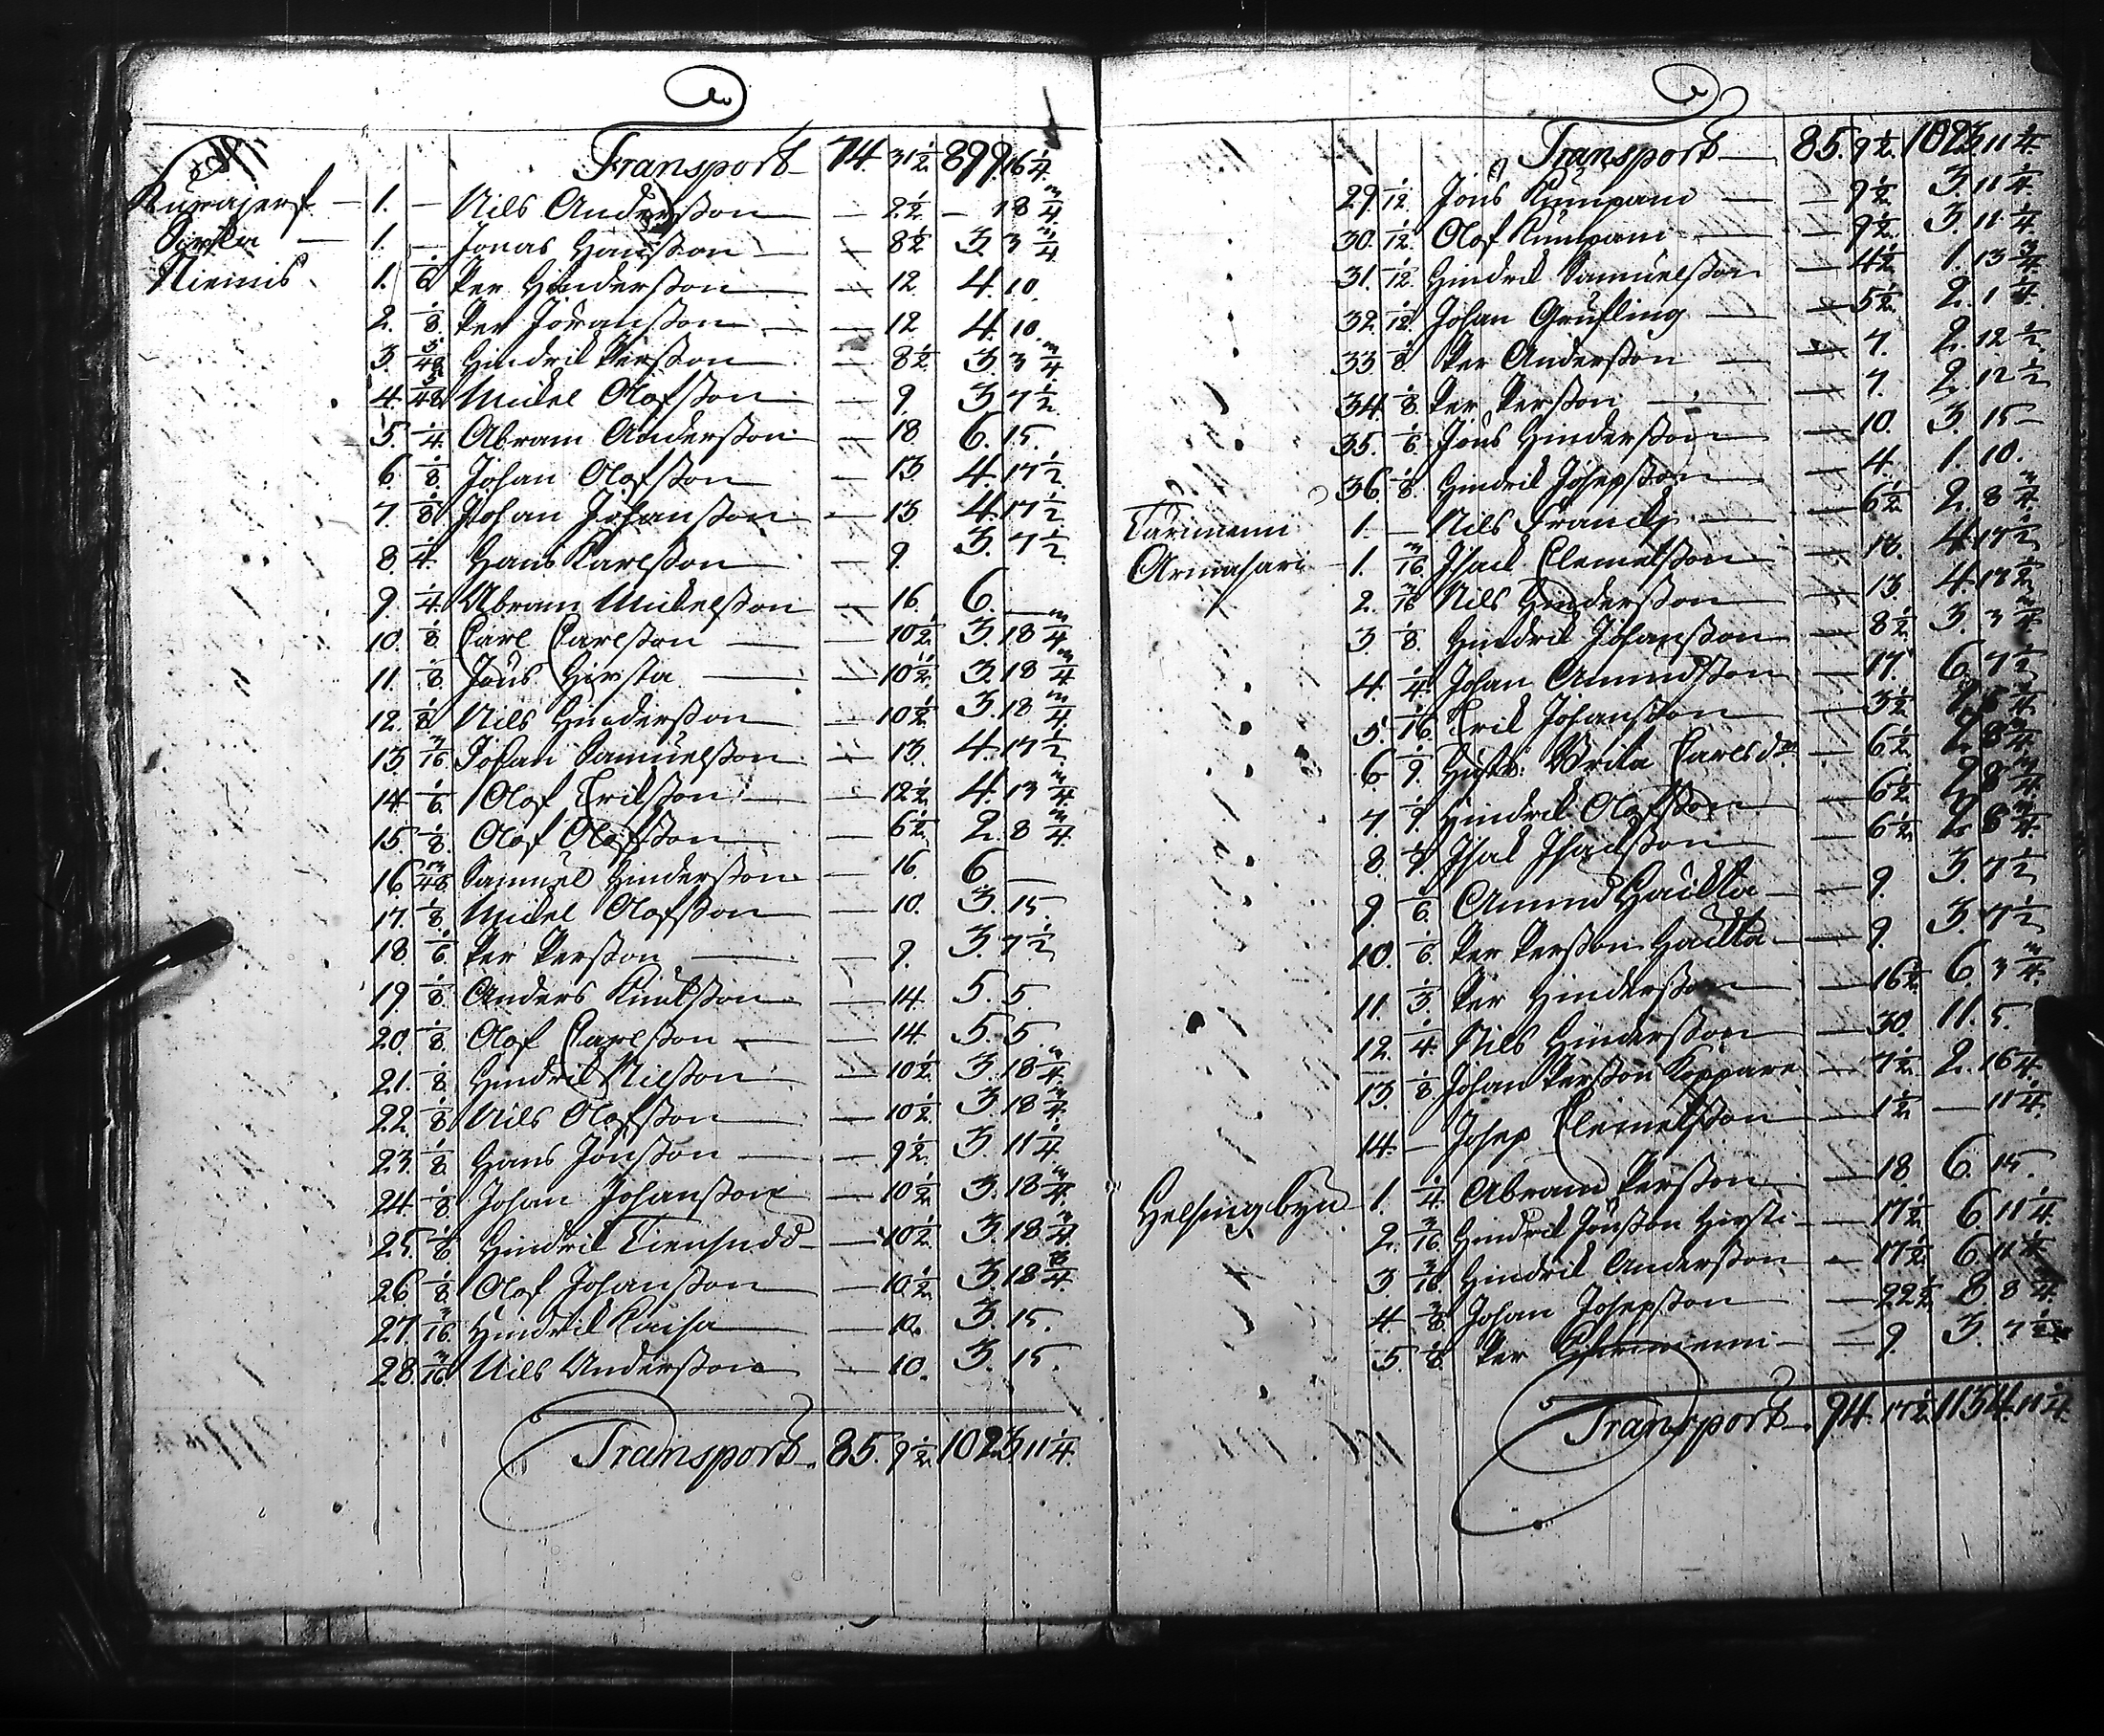 Transport 74. 31½ 899. 16¼
Kurajerf 1. — Nils Andersson — 2½ — 18¾
Pirsta — 1. — Jonas Hansson — 8½ 3. 3¾
Niemis 1. 1/6 Per Hindersson — 12 4. 10.
2. 1/8 Per Joransson — 12 4. 10.
3. 5/48 Hindrik Persson — 8½ 3. 3¾
4. 5/48 Mickel Olofsson — 9. 3. 7½
5. ¼ Abram Andersson — 18. 6. 15.
6. 1/8 Johan Olofsson — 13. 4. 17½
7. 1/8 Johan Johansson — 13. 4. 17½
8. ¼ Hans Karlsson — 9. 3. 7½
9. ¼ Abram Mickelsson — 16. 6. —
10. 1/8 Carl Carlsson — 10½ 3. 18¾
11. 1/8 Jöns Hirsta — 10½ 3. 18¾
12. 1/8 Nils Hindersson — 10½ 3. 18¾
13. 3/16 Johan Samuelsson — 13. 4. 17½
14. 1/6 Olof Ericsson — 12½ 4. 13¾
15. 1/8 Olof Olofsson — 6½ 2. 8¾
16. 7/48 Samuel Hindersson — 16. 6 —
17. 1/8 Mickel Olofsson — 10. 3. 15.
18. 1/6 Per Persson — 9. 3. 7½
19. 1/8 Anders Knutsson — 14. 5. 5
20. 1/8 Olof Carlsson — 14. 5. 5
21. 1/8 Hindrik Nilsson — 10½ 3. 18¾
22. 1/8 Nils Olofsson — 10½ 3. 18¾
23. 1/8 Hans Jönsson — 9½ 3. 11¼
24. 1/8 Johan Johansson — 10½ 3. 18¾
25. 1/8 Hindrik — 10½ 3. 18¾
26. 1/8 Olof Johansson — 10½ 3. 18¾
27. 3/16 Hindrik Kaisa — 10. 3. 15.
28. 3/16 Nils Andersson — 10. 3. 15.
Transport 85. 9½ 1023. 11¼
Transport — 85. 9½ 1023. 11¼
29. 1/12 Jöns Kumpani — 9½ 3. 11¼
30. 1/12 Olof Kumpani — 9½ 3. 11¼
31. 1/12 Hindrik Samuelsson — 4½ 1. 13¾
32. 1/12 Johan Grufling — 5½ 2. 1¼
33. 1/8 Per Andersson — 7. 2. 12½
34. 1/8 Per Persson — 7. 2. 12½
35. 1/6 Jöns Hindersson — 10. 3. 15
36. 1/8 Hindrik Josepsson — 4 1. 10.
Tärmenni 1. — Nils — 6½ 2. 8¾
Armasari 1. 3/16 Isack Clemetsson — 13. 4. 17½
2. 3/16 Nils Hindersson — 13. 4. 17½
3. 1/8 Hindrik Johansson — 8½ 3. 3¾
4. ¼ Johan Amundsson — 17. 6. 7½
5. 1/16 Erik Johansson — 3½
6. 1/9 Hust: Brita Carlsdr — 6½ 2. 8¾
7. Hindrik Olofsson — 6½ 2. 8¾
8. Isak Isacsson — 6½ 2. 8¾
9. 1/6 Amund Hackta — 9. 3. 7½
10. 1/6 Per Persson Hackta — 9. 3. 7½
11. 1/3 Per Hindersson — 16½ 6. 3¾
12. ¼ Nils Hindersson — 30. 11. 5.
13. 1/8 Johan Persson Koppare — 7½ 2. 16¼
14. — Josep Clemetsson — 1½ — 11¼
Helsingbyn 1. ¼ Abram Persson — 18. 6. 15.
2. 3/16 Hindrik Jönsson Hirsti — 17½ 6. 11¼
3. 3/16 Hindrik Andersson — 17½ 6. 11¼
4. 3/8 Johan Josepsson — 22½ 8 8¾
5. 1/8 Per — 9. 3. 7½
Transport 94. 17½ 1134. 11¼